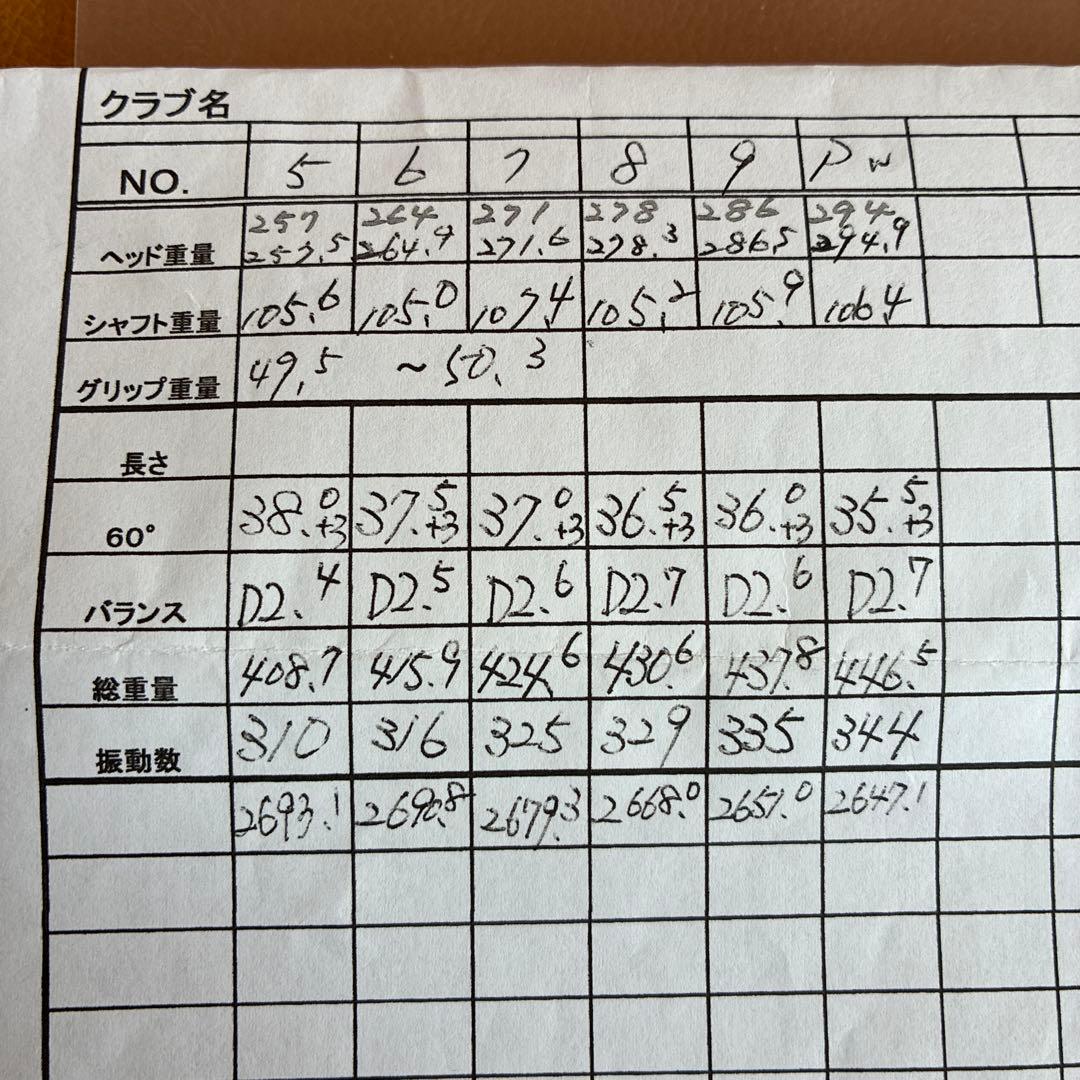 クラブ名
NO. 5 6 7 8 9 Pw
257 264. 271 278. 286 294.
ヘッド重量 257.5 264.9 271.6 278.3 286.5 294.9
シャフト重量 105.6 105.0 107.4 105.2 105.9 106.4
グリップ重量 49.5 ~50.3
長さ
60° 38.0+3 37.5+3 37.0+3 36.5+3 36.0+3 35.5+3
バランス D2.4 D2.5 D2.6 D2.7 D2.6 D2.7
総重量 408.7 415.9 424.6 430.6 437.8 446.5
振動数 310 316 325 329 335 344
2693.1 2690.8 2679.3 2668.0 2651.0 2647.1